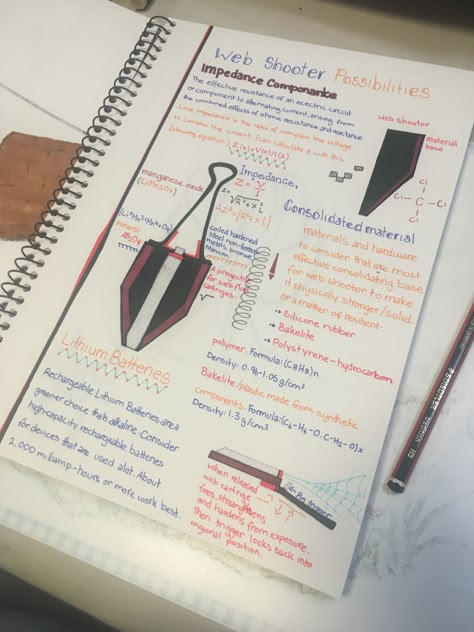 Web Shooter Possibilities
Impedance Componanke
The effective resistance of an ecectric circuit
or component to alternating current, arising from
the combined effects of ohmic resistance and reactance.
Line impedance is the ratio of complex line voltage
to complex line current. (can calculate it with this
following equation.) Z(x)=V(x)/I(x).
Impedance,
Z = V/I
manganese oxide
mineral
coiled hardened
steel non-ferrous
metals, bronze
titanium.
A projectile
for web fluid
catriges.
Lithium Batteries
Rechargeable Lithium Batteries are a
greener choice than alkaline. Consider
high-capacity rechargeable batteries
for devices that are used alot. About
2,000 milliamp-hours or more work best.
web shooter
material
base
Cl
Cl — C — Cl
Cl
Consolidated material
materials and hardware
to consider that are most
effective consolidating base
for web shooter to make
it physically stronger/solid.
or a matter of resilient.
Silicone rubber
Bakelite
Polystyrene-hydrocarbon
polymer: Formula: (C8H8)n
Density: 0.96-1.05 g/cm³
Bakelite/plastic made from synthetic
components: Formula: (C6-H6-O.C-H2-O)x
Density: 1.3 g/cm³
when released
web catrige
fires, strengthens
and hardens from exposure.
Then trigger locks back into
original position.
Pin trigger
STAEDTLER